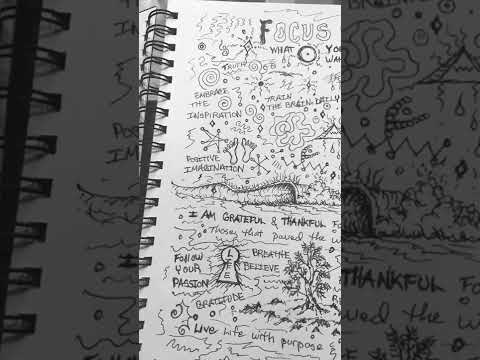 FOCUS
WHAT YOU
WAN
TRUTH
EMBRACE
THE
INSPIRATION
TRAIN
THE BRAIN DAILY
POSITIVE
IMAGINATION
I AM GRATEFUL & THANKFUL FO
Those that paved the w
FOLLOW
YOUR
PASSION
LIFE
BREATHE
BELIEVE
GRATITUDE
Live life with purpose